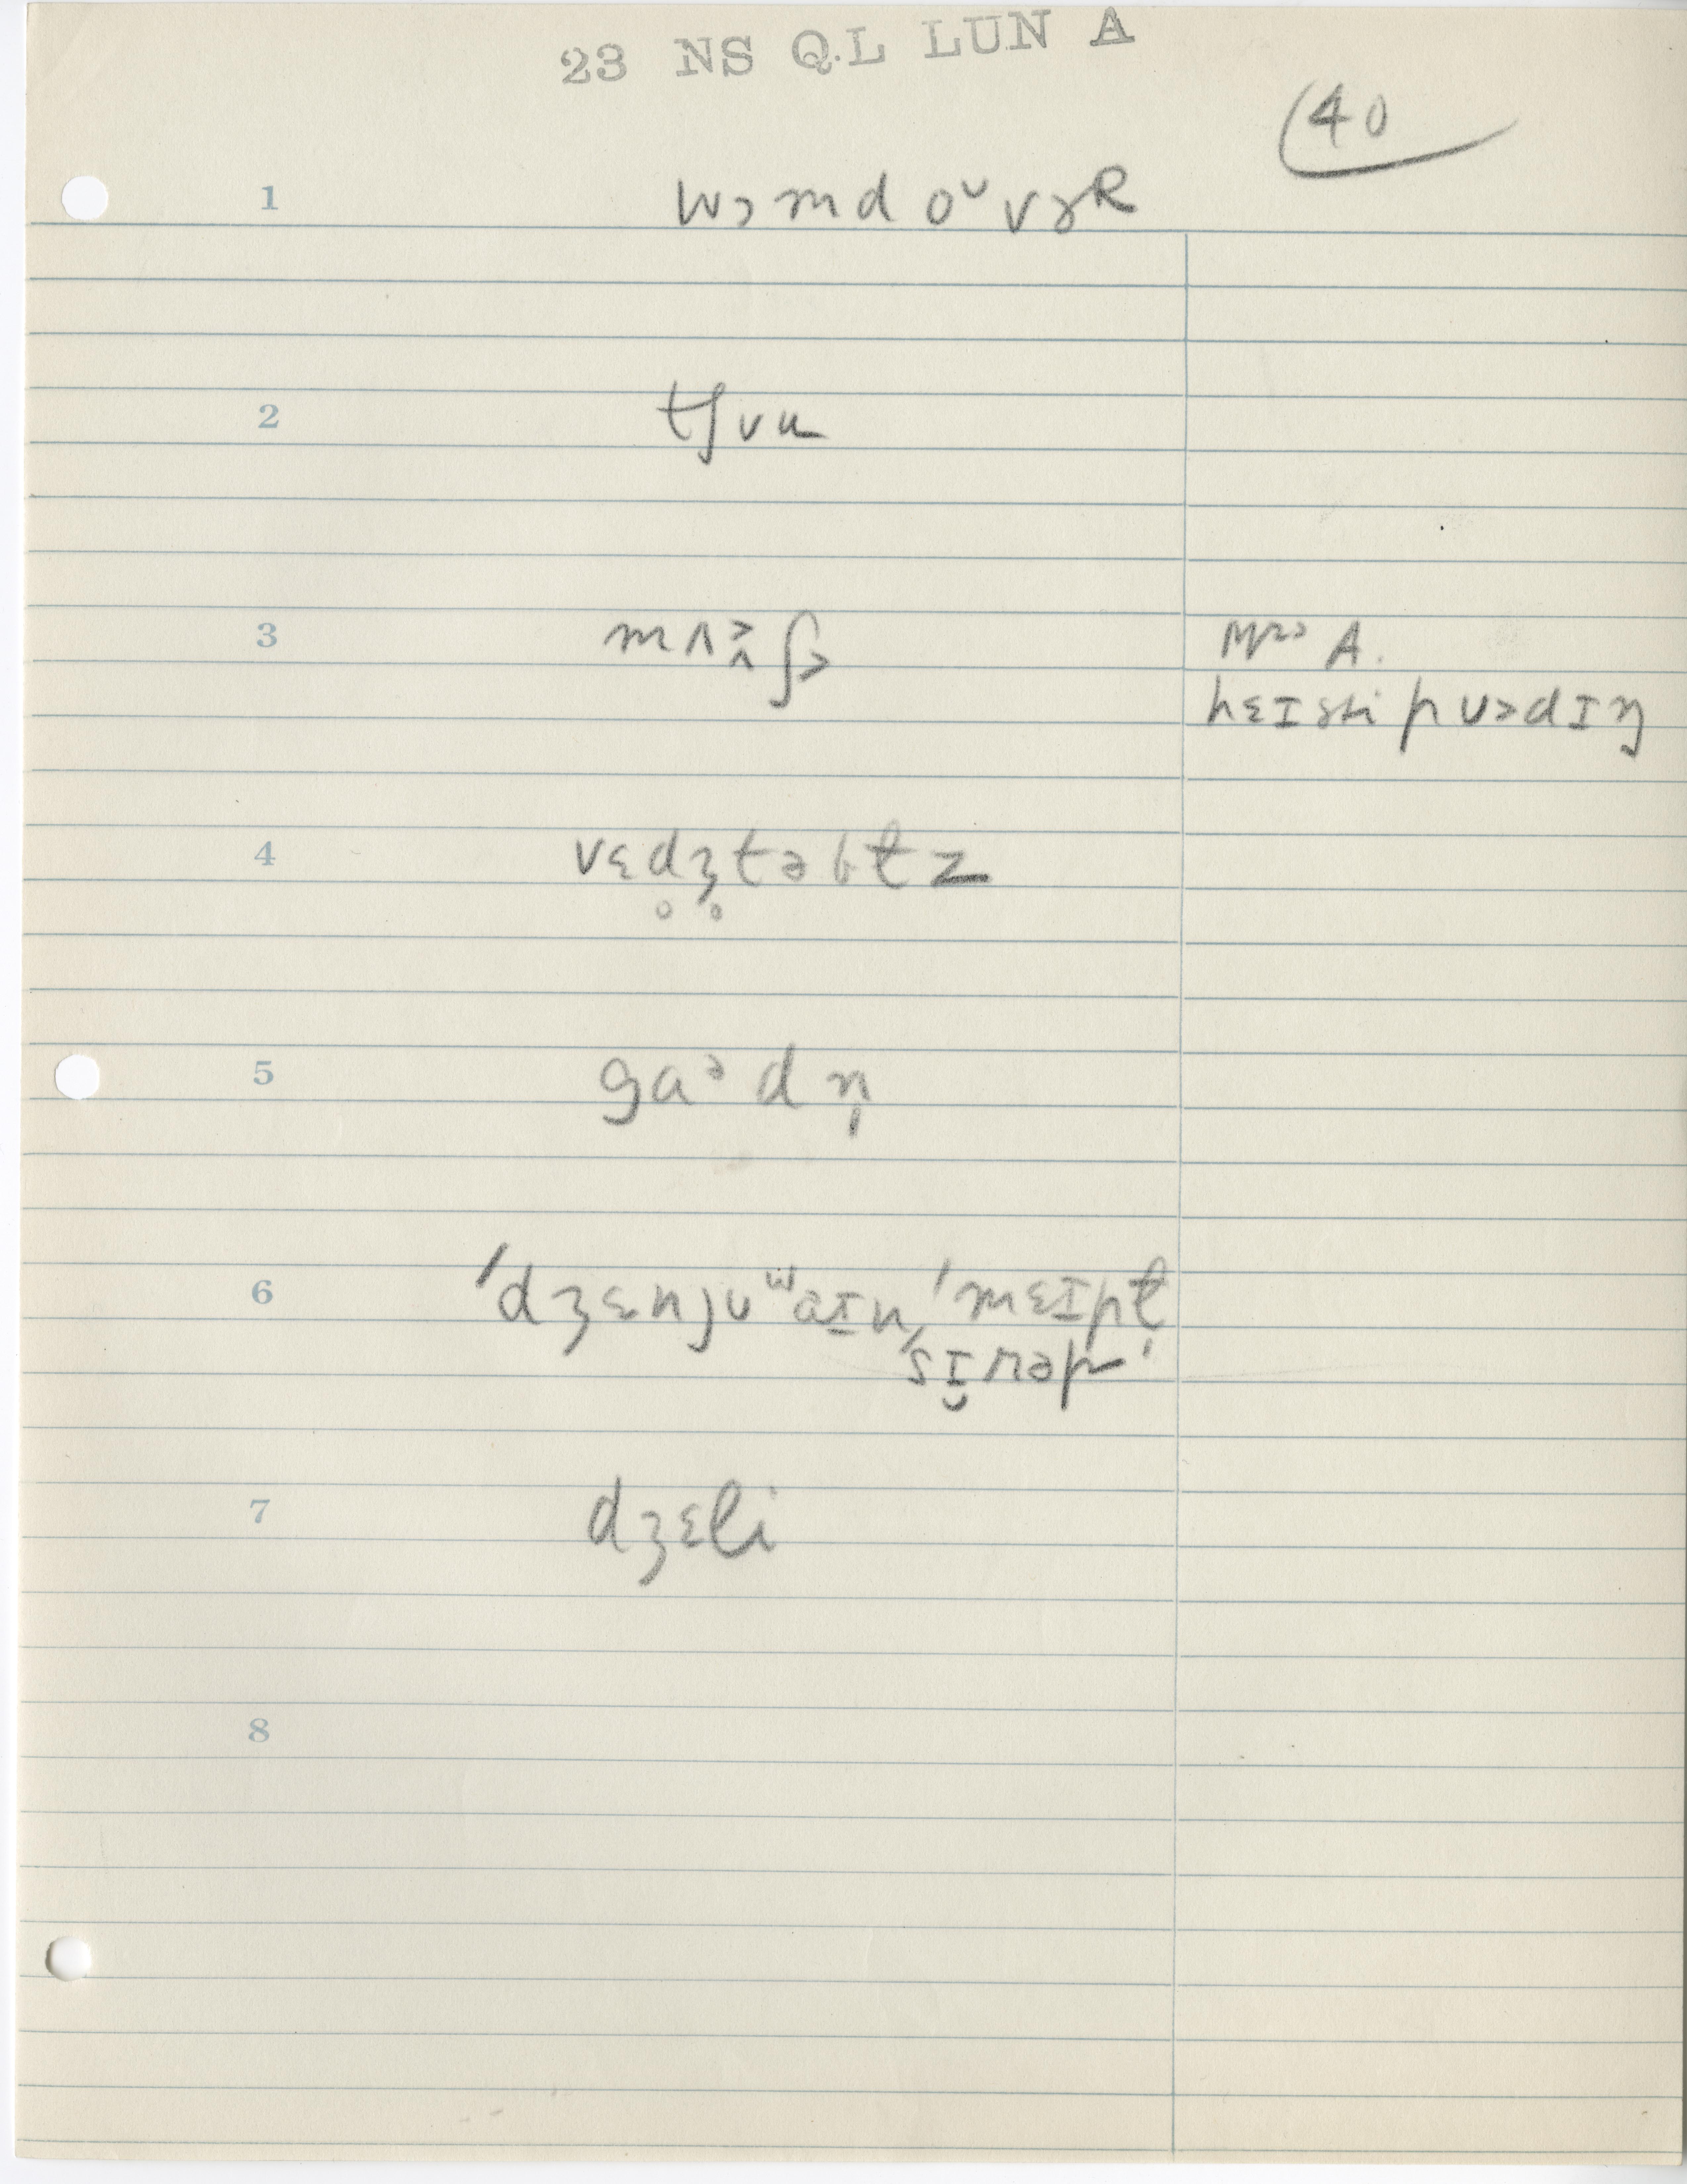 23 NS Q.L LUN A
40
1 wɔmd oᵛvɤR
2 tʃuu
3 mʌ˃ʃ>
Mrs A.
hɛɪsti pu>dɪŋ
4 vɛd̥ʒ̥təbɫz
5 gaᵊdn̩
6 ˈdʒɛnjuʷaɪn ˈmɛɪpɫ̩
ˈsɪ̆rəp
7 dʒɛli
8